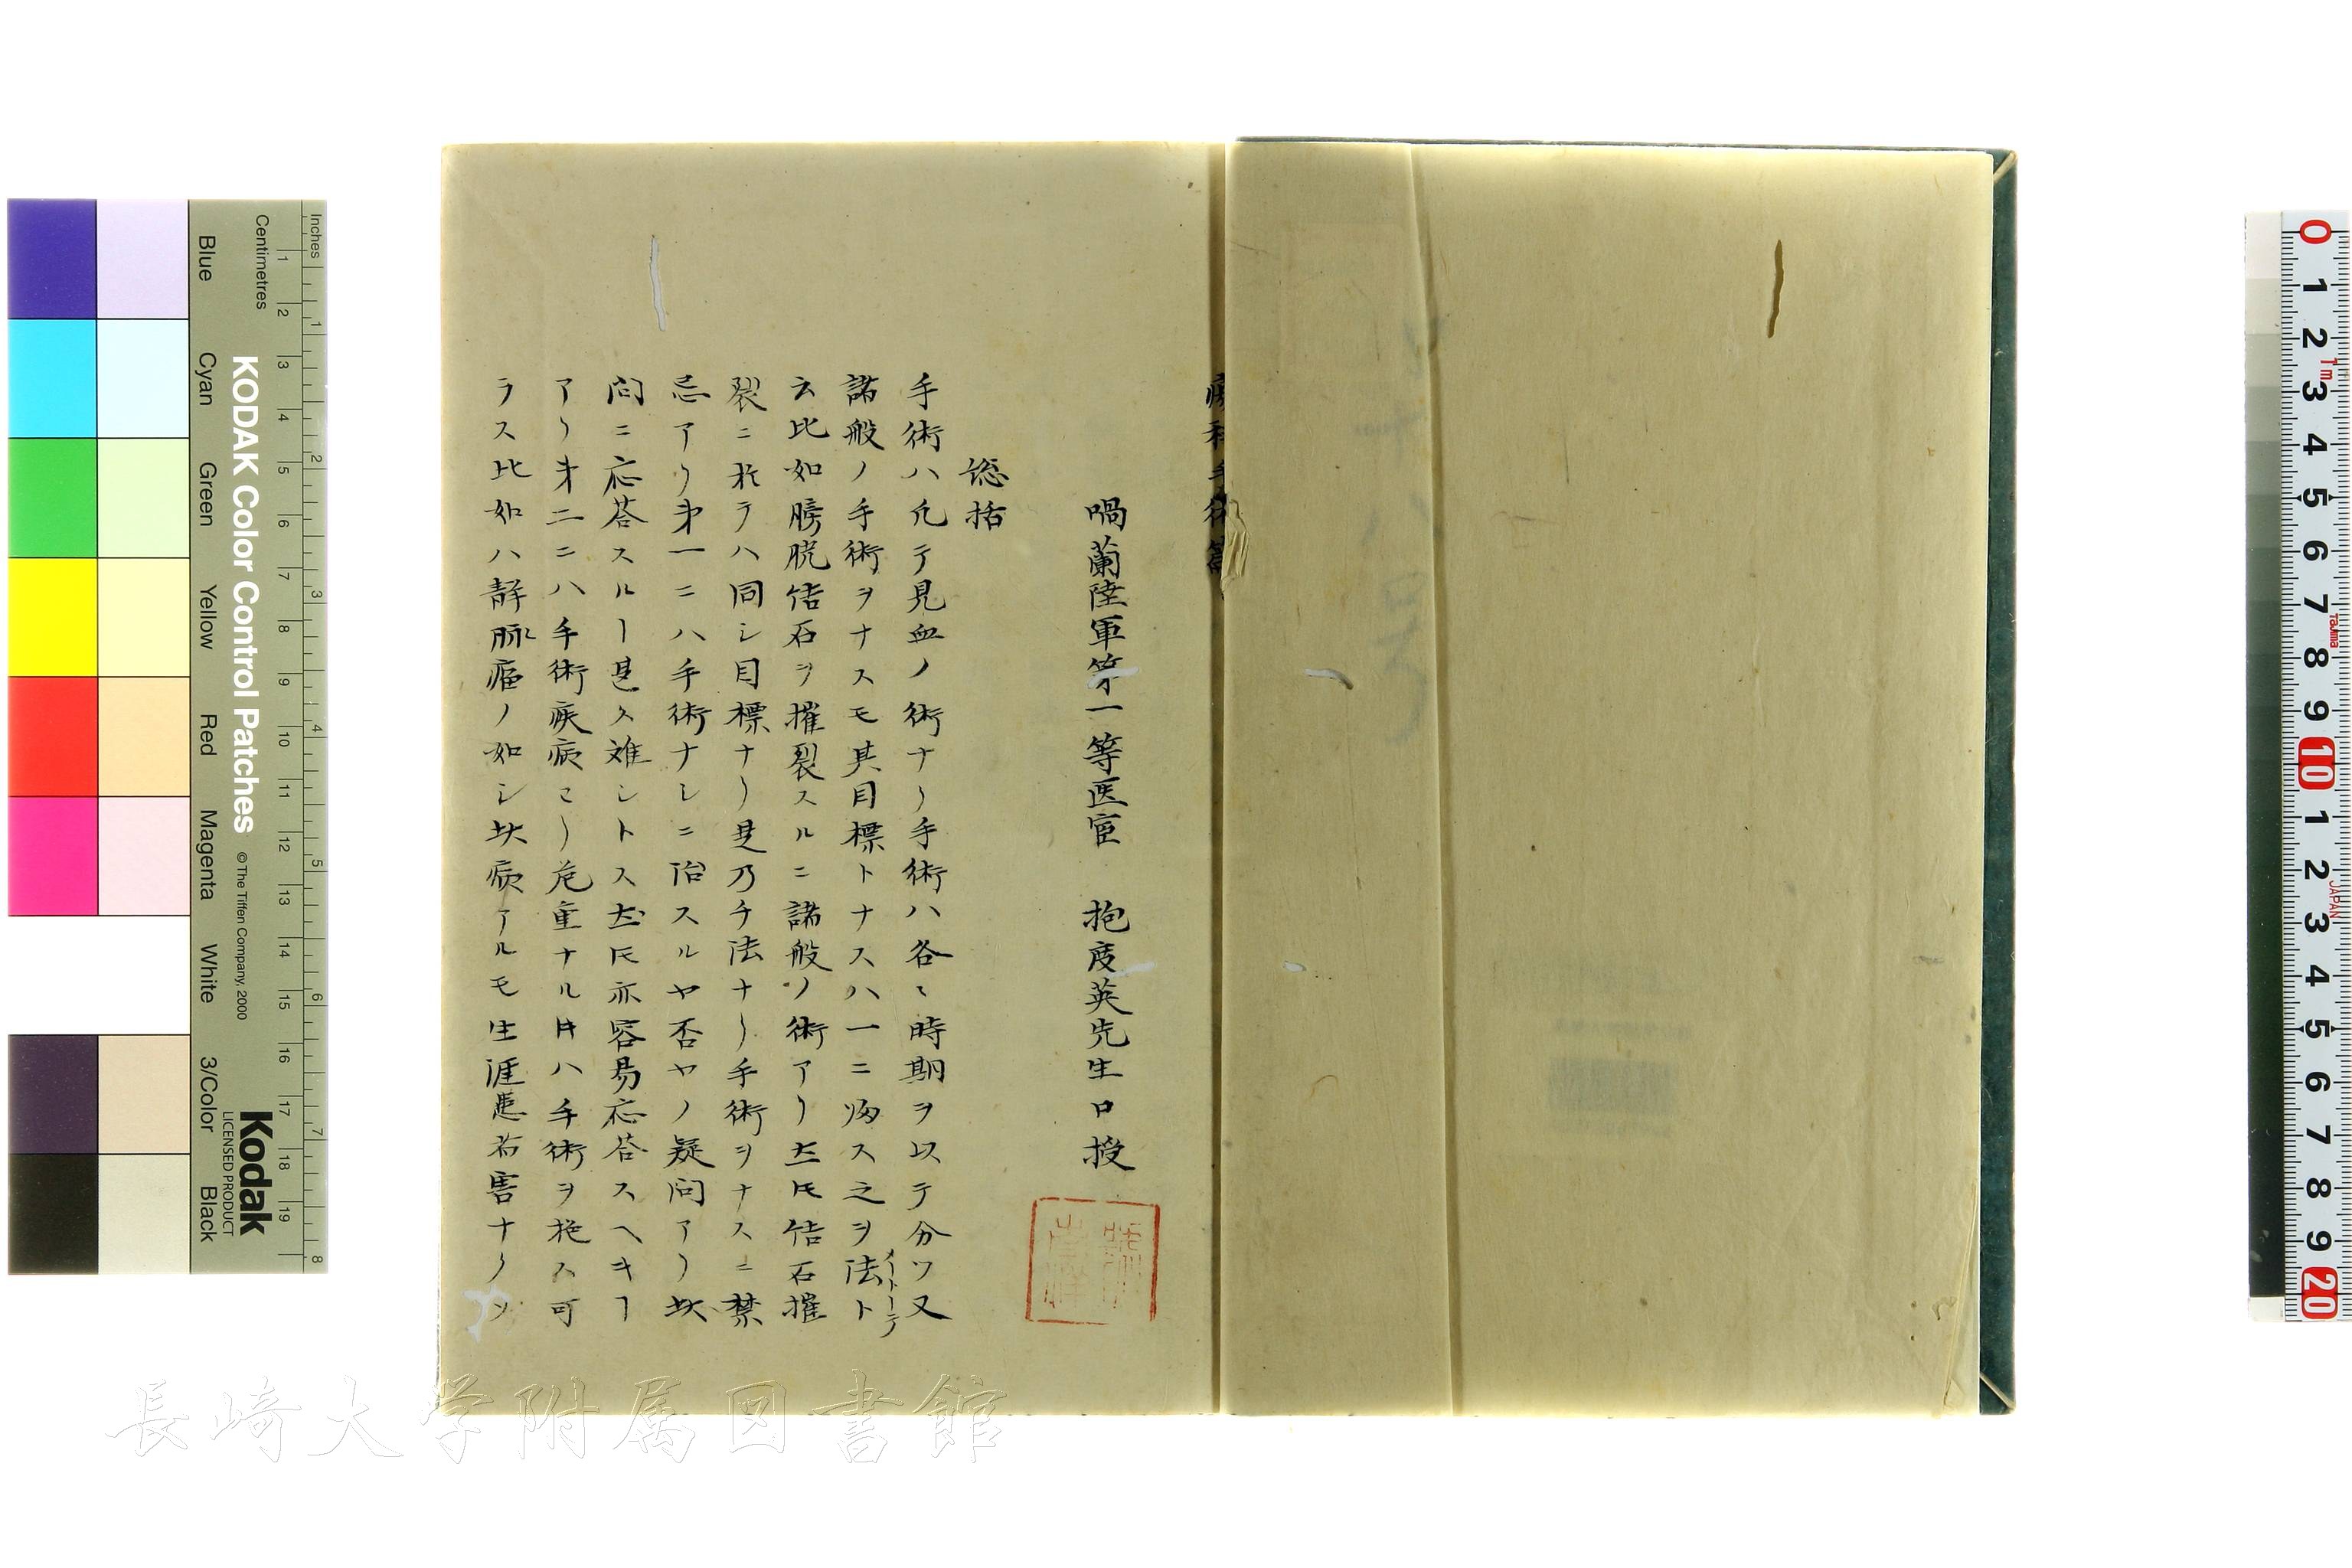 瘍科手術篇
喎蘭陸軍第一等医官 抱度英先生口授
総括
手術ハ凡テ見血ノ術ナリ手術ハ各々時期ヲ以テ分ツ又
諸般ノ手術ヲナスモ其目標トナスハ一ニ帰ス之ヲ法ト
メートーデ
云比如膀胱結石ヲ摧裂スルニ諸般ノ術アリ圧氏結石摧
裂ニ於テハ同シ目標ナリ是乃チ法ナリ手術ヲナスニ禁
忌アリ第一ニハ手術ナシニ治スルヤ否ヤノ疑問アリ此
問ニ応答スルヿ甚タ難シトス圧氏亦容易応答スヘキヿ
アリ第二ニハ手術疾病ヨリ危重ナル時ハ手術ヲ施ス可
ラス比如ハ静脉瘤ノ如シ此病アルモ生涯患者害ナクン
長崎大学附属図書館
KODAK Color Control Patches
©The Tiffen Company, 2000
Kodak
LICENSED PRODUCT
Inches
1 2 3 4 5 6 7 8
Centimetres
1 2 3 4 5 6 7 8 9 10 11 12 13 14 15 16 17 18 19
Blue
Cyan
Green
Yellow
Red
Magenta
White
3/Color
Black
0 1 2 3 4 5 6 7 8 9 10 1 2 3 4 5 6 7 8 9 20
Tajima
JAPAN